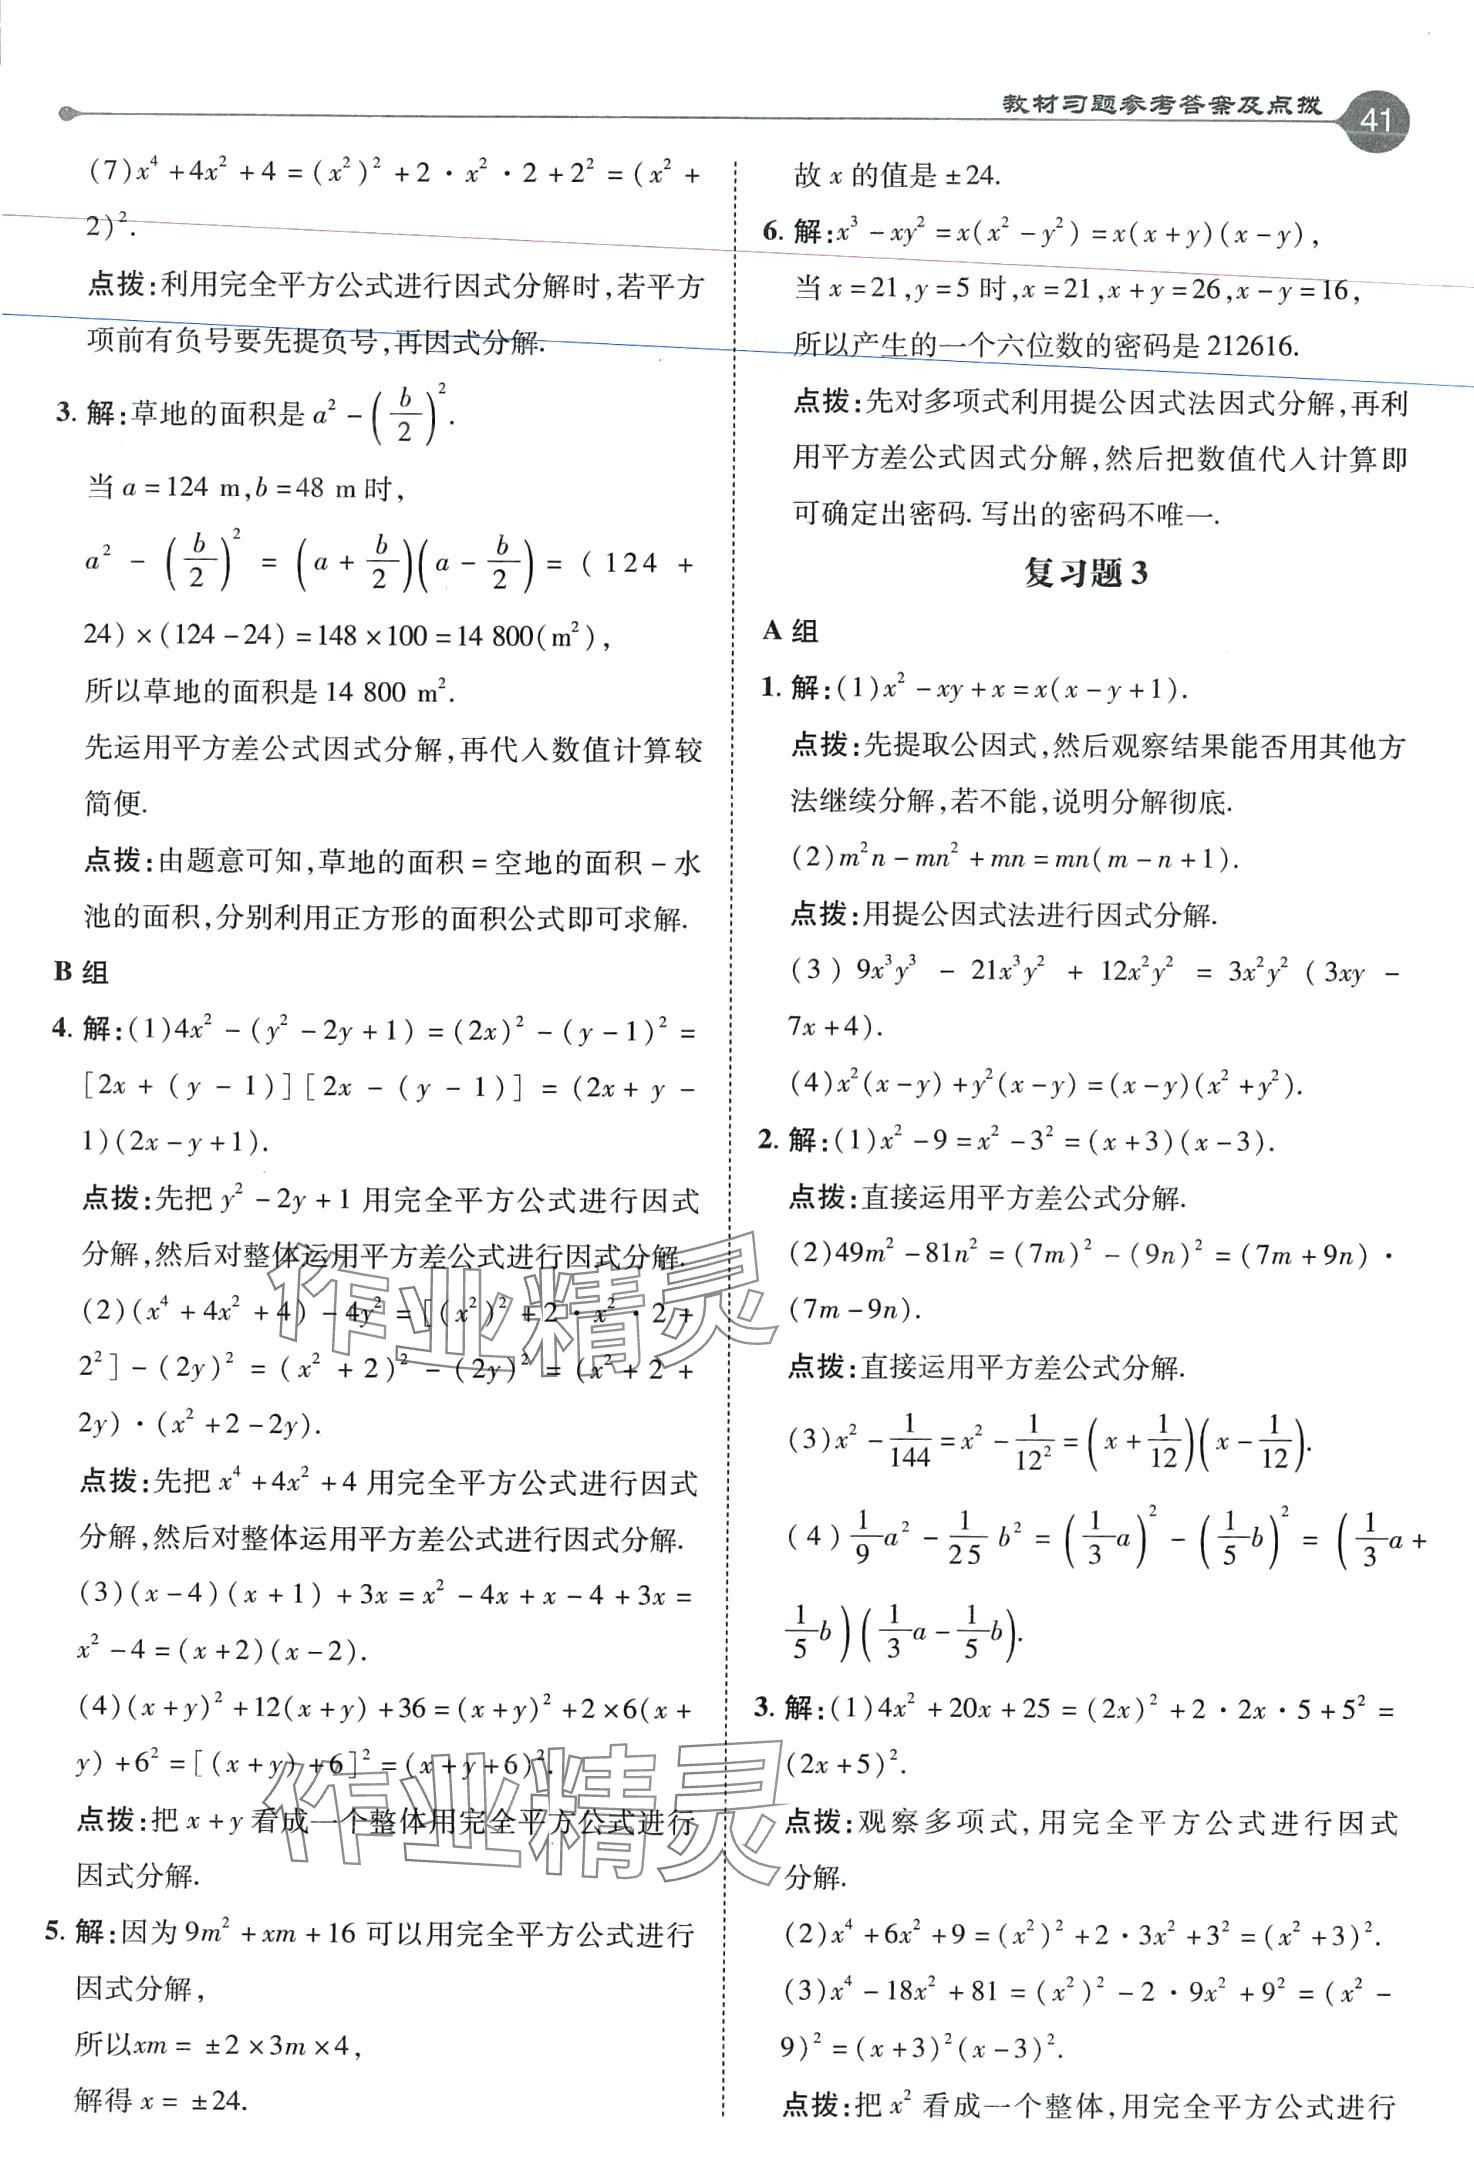 教材习题参考答案及点拨 41
(7)x⁴+4x²+4=(x²)²+2·x²·2+2²=(x²+
2)².
点拨:利用完全平方公式进行因式分解时,若平方
项前有负号要先提负号,再因式分解.
3. 解:草地的面积是 a²-(b/2)².
当 a=124 m,b=48 m 时,
a²-(b/2)²=(a+b/2)(a-b/2)=(124+
24)×(124-24)=148×100=14 800(m²),
所以草地的面积是 14 800 m².
先运用平方差公式因式分解,再代入数值计算较
简便.
点拨:由题意可知,草地的面积=空地的面积-水
池的面积,分别利用正方形的面积公式即可求解.
B 组
4. 解:(1)4x²-(y²-2y+1)=(2x)²-(y-1)²=
[2x+(y-1)][2x-(y-1)]=(2x+y-
1)(2x-y+1).
点拨:先把 y²-2y+1 用完全平方公式进行因式
分解,然后对整体运用平方差公式进行因式分解.
(2)(x⁴+4x²+4)-4y²=[(x²)²+2·x²·2+
2²]-(2y)²=(x²+2)²-(2y)²=(x²+2+
2y)·(x²+2-2y).
点拨:先把 x⁴+4x²+4 用完全平方公式进行因式
分解,然后对整体运用平方差公式进行因式分解.
(3)(x-4)(x+1)+3x=x²-4x+x-4+3x=
x²-4=(x+2)(x-2).
(4)(x+y)²+12(x+y)+36=(x+y)²+2×6(x+
y)+6²=[(x+y)+6]²=(x+y+6)².
点拨:把 x+y 看成一个整体用完全平方公式进行
因式分解.
5. 解:因为 9m²+xm+16 可以用完全平方公式进行
因式分解,
所以xm=±2×3m×4,
解得 x=±24.
故 x 的值是±24.
6. 解:x³-xy²=x(x²-y²)=x(x+y)(x-y),
当 x=21,y=5 时,x=21,x+y=26,x-y=16,
所以产生的一个六位数的密码是 212616.
点拨:先对多项式利用提公因式法因式分解,再利
用平方差公式因式分解,然后把数值代入计算即
可确定出密码. 写出的密码不唯一.
复习题 3
A 组
1. 解:(1)x²-xy+x=x(x-y+1).
点拨:先提取公因式,然后观察结果能否用其他方
法继续分解,若不能,说明分解彻底.
(2)m²n-mn²+mn=mn(m-n+1).
点拨:用提公因式法进行因式分解.
(3)9x³y³-21x³y²+12x²y²=3x²y²(3xy-
7x+4).
(4)x²(x-y)+y²(x-y)=(x-y)(x²+y²).
2. 解:(1)x²-9=x²-3²=(x+3)(x-3).
点拨:直接运用平方差公式分解.
(2)49m²-81n²=(7m)²-(9n)²=(7m+9n)·
(7m-9n).
点拨:直接运用平方差公式分解.
(3)x²-1/144=x²-1/12²=(x+1/12)(x-1/12).
(4)1/9a²-1/25b²=(1/3a)²-(1/5b)²=(1/3a+
1/5b)(1/3a-1/5b).
3. 解:(1)4x²+20x+25=(2x)²+2·2x·5+5²=
(2x+5)².
点拨:观察多项式,用完全平方公式进行因式
分解.
(2)x⁴+6x²+9=(x²)²+2·3x²+3²=(x²+3)².
(3)x⁴-18x²+81=(x²)²-2·9x²+9²=(x²-
9)²=(x+3)²(x-3)².
点拨:把 x² 看成一个整体,用完全平方公式进行
作业精灵
作业精灵